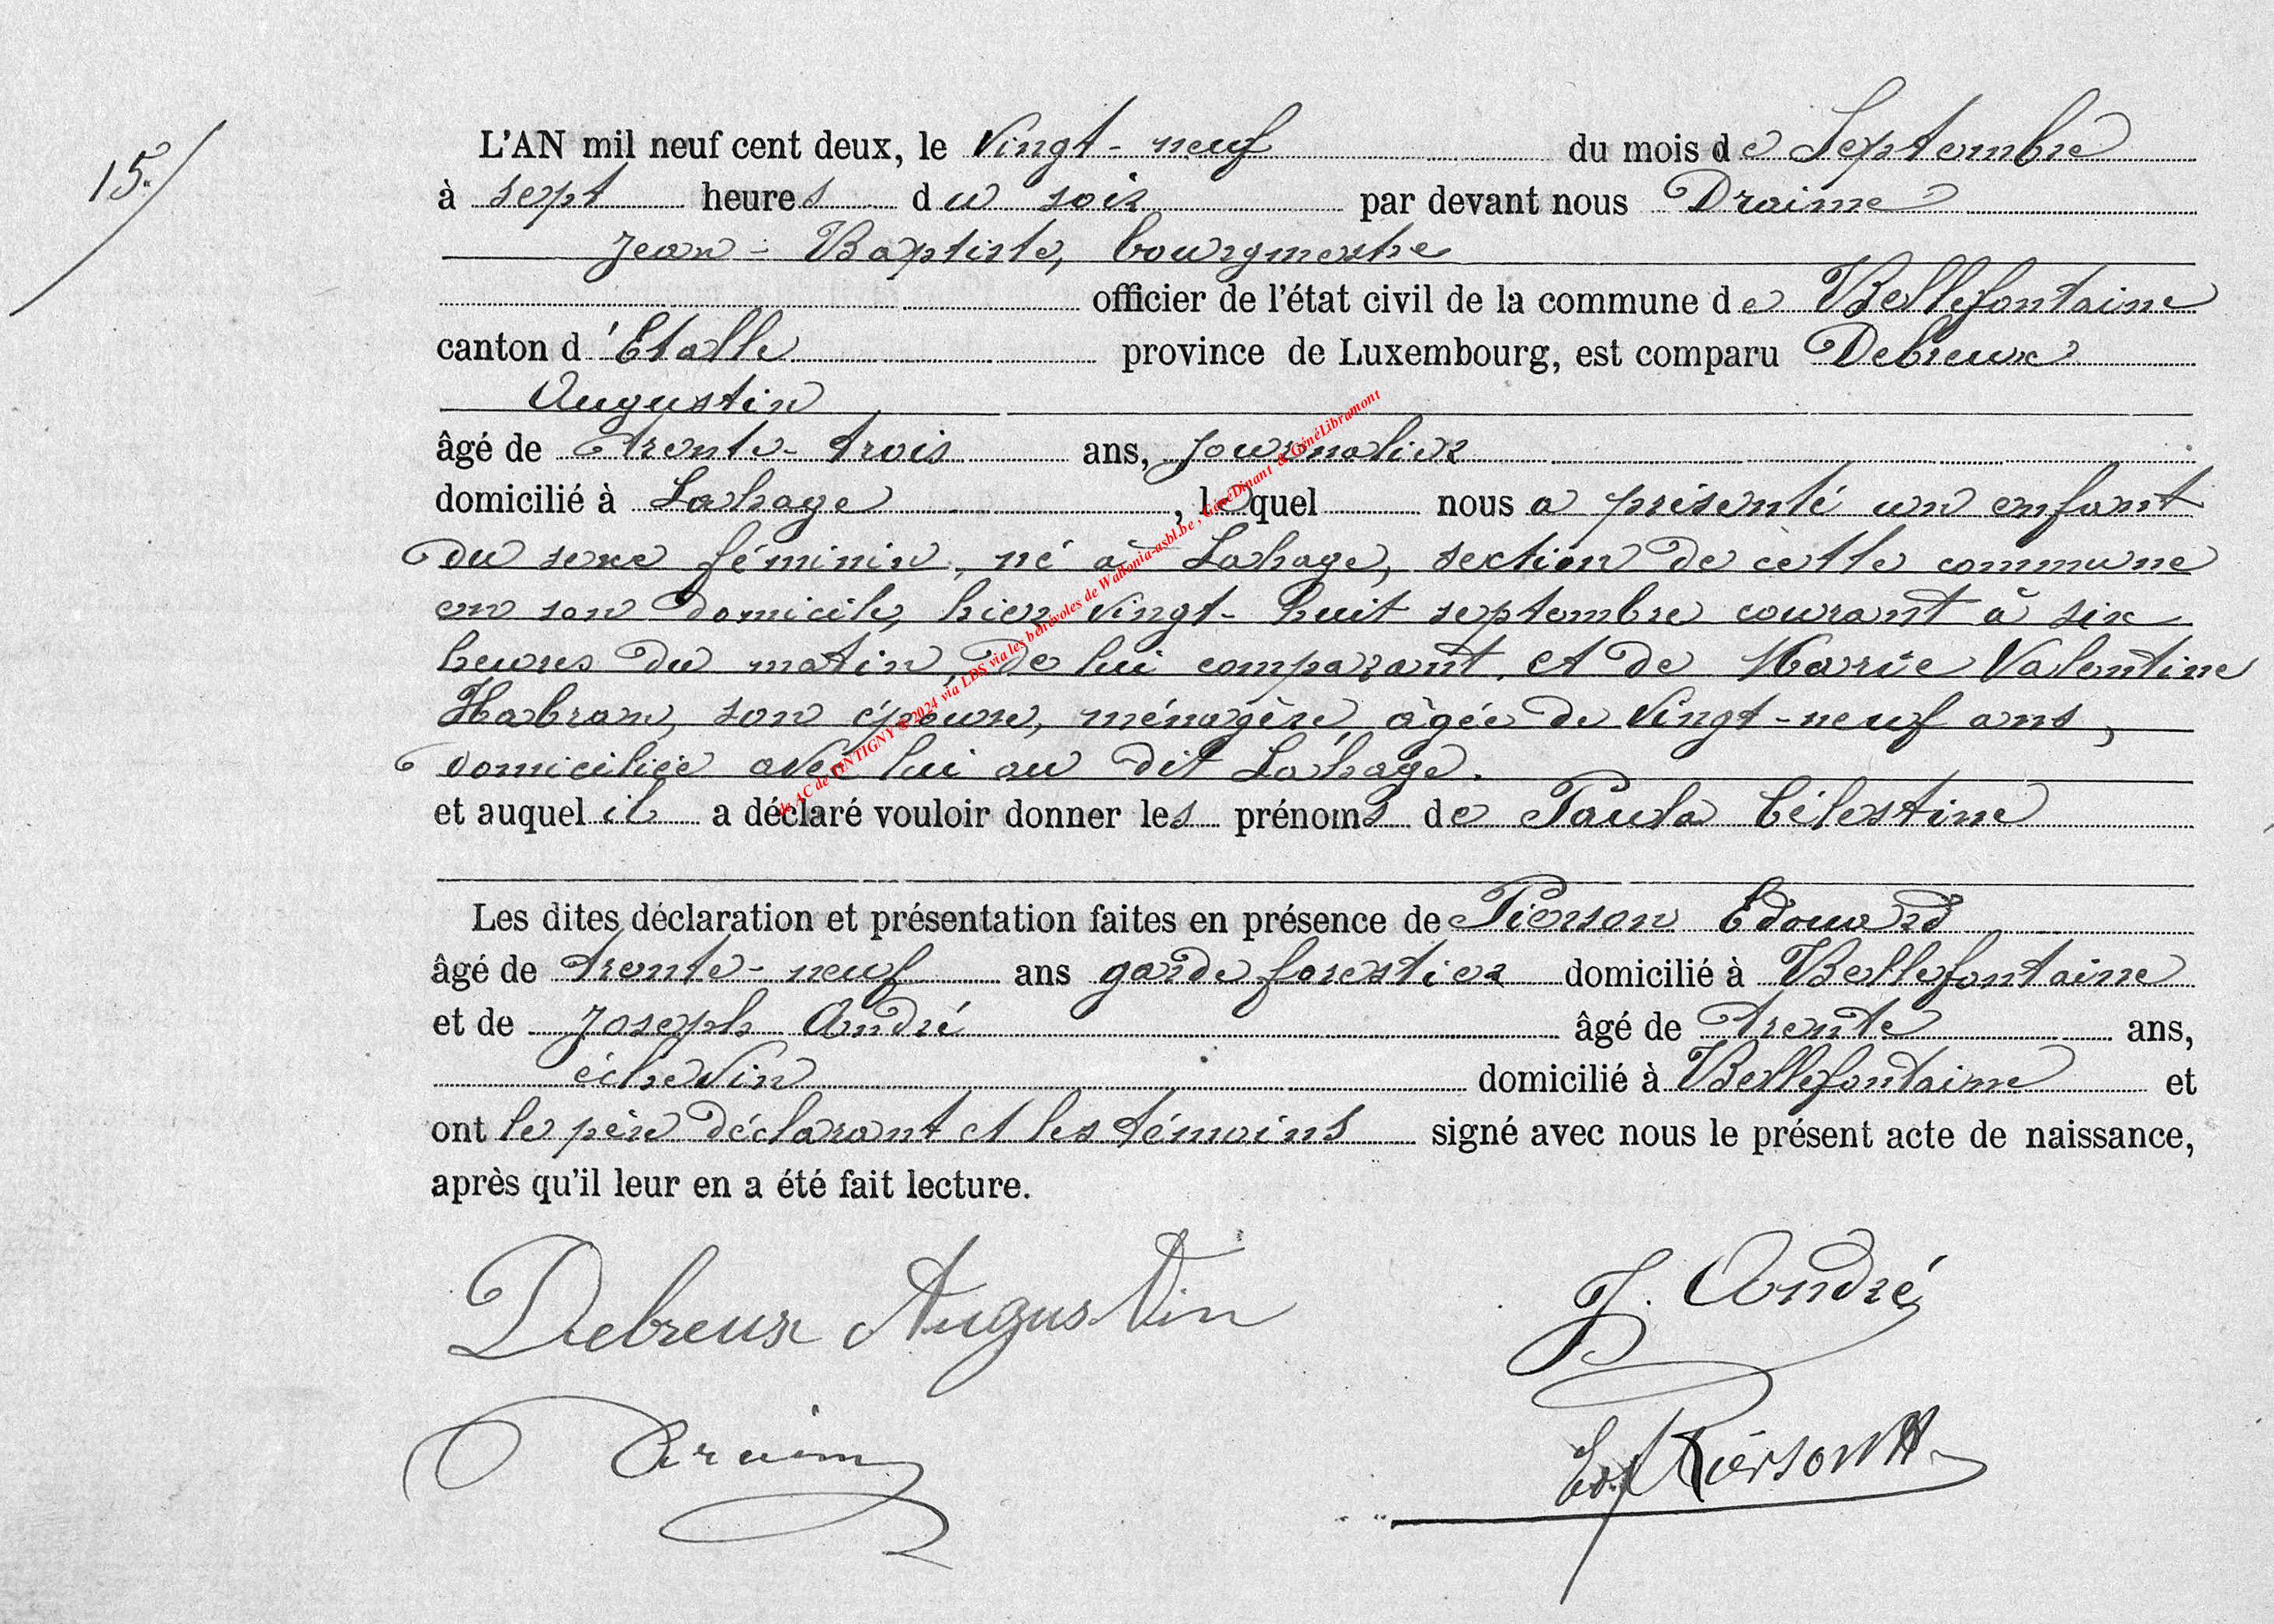 15.
L'AN mil neuf cent deux, le Vingt-neuf du mois de Septembre
à sept heures du soir par devant nous Draime
Jean-Baptiste, bourgmestre
officier de l'état civil de la commune de Bellefontaine
canton d'Etalle province de Luxembourg, est comparu Debreux
Augustin
âgé de trente-trois ans, journalier
domicilié à Lahage, lequel nous a présenté un enfant
du sexe féminin, né à Lahage, section de cette commune
en son domicile, hier vingt-huit septembre courant à six
heures du matin, de lui comparant, et de Marie Valentine
Habran, son épouse, ménagère, âgée de vingt-neuf ans,
domiciliée avec lui au dit Lahage.
et auquel il a déclaré vouloir donner les prénoms de Paula Célestine
Les dites déclaration et présentation faites en présence de Pierson Edouard
âgé de trente-neuf ans garde forestier domicilié à Bellefontaine
et de Joseph André âgé de trente ans,
échevin domicilié à Bellefontaine et
ont le père déclarant et les témoins signé avec nous le présent acte de naissance,
après qu'il leur en a été fait lecture.
Debreux Augustin
J. André
Draime
Ed. Pierson
de AC de TINTIGNY ©2024 via LDS via les bénévoles de Wallonia-asbl.be, GénéDinant & GénéLibramont